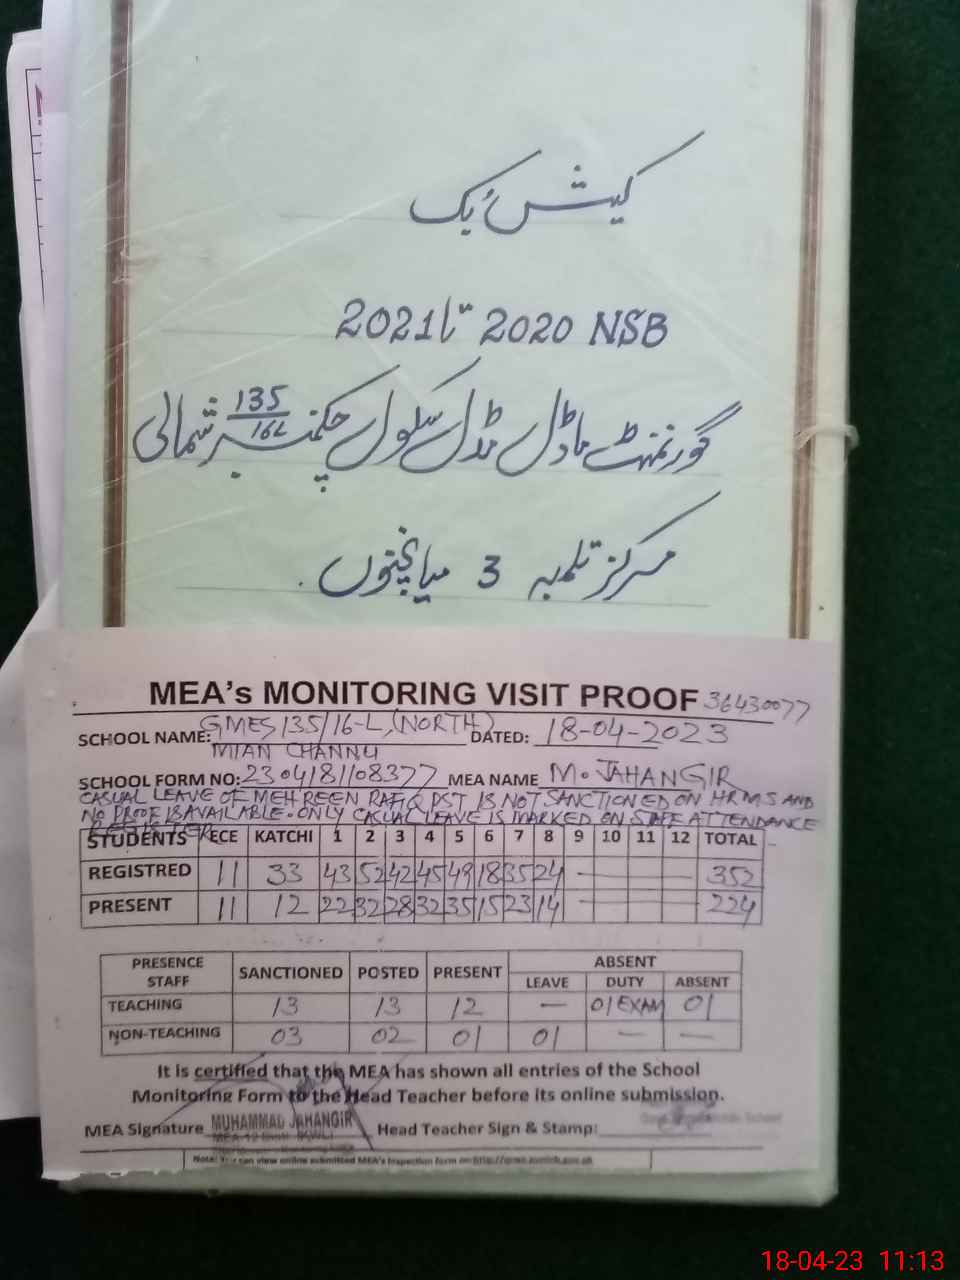 کیش بک
2020 تا 2021 NSB
گورنمنٹ ماڈل مڈل سکول چکنمبر 135/16L شمالی
مرکز تلمبہ 3 میانچنوں.
MEA's MONITORING VISIT PROOF 36430077
SCHOOL NAME: GMES 135/16-L, (NORTH) DATED: 18-04-2023
MIAN CHANNU
SCHOOL FORM NO: 2304181108377 MEA NAME M. JAHANGIR
CASUAL LEAVE OF MEHREEN RAFIQ PST IS NOT SANCTIONED ON HRMS AND
NO PROOF IS AVAILABLE. ONLY CASUAL LEAVE IS MARKED ON STAFF ATTENDANCE
REGISTER
STUDENTS ECE KATCHI 1 2 3 4 5 6 7 8 9 10 11 12 TOTAL
REGISTRED 11 33 43 52 42 45 49 18 35 24 — 352
PRESENT 11 12 22 32 28 32 35 15 23 14 — 224
PRESENCE STAFF SANCTIONED POSTED PRESENT ABSENT
LEAVE DUTY ABSENT
TEACHING 13 13 12 — 01 EXAM 01
NON-TEACHING 03 02 01 01 — —
It is certified that the MEA has shown all entries of the School
Monitoring Form to the Head Teacher before its online submission.
MEA Signature MUHAMMAD JAHANGIR Head Teacher Sign & Stamp:
Note: You can view online submitted MEA's inspection form on
18-04-23 11:13